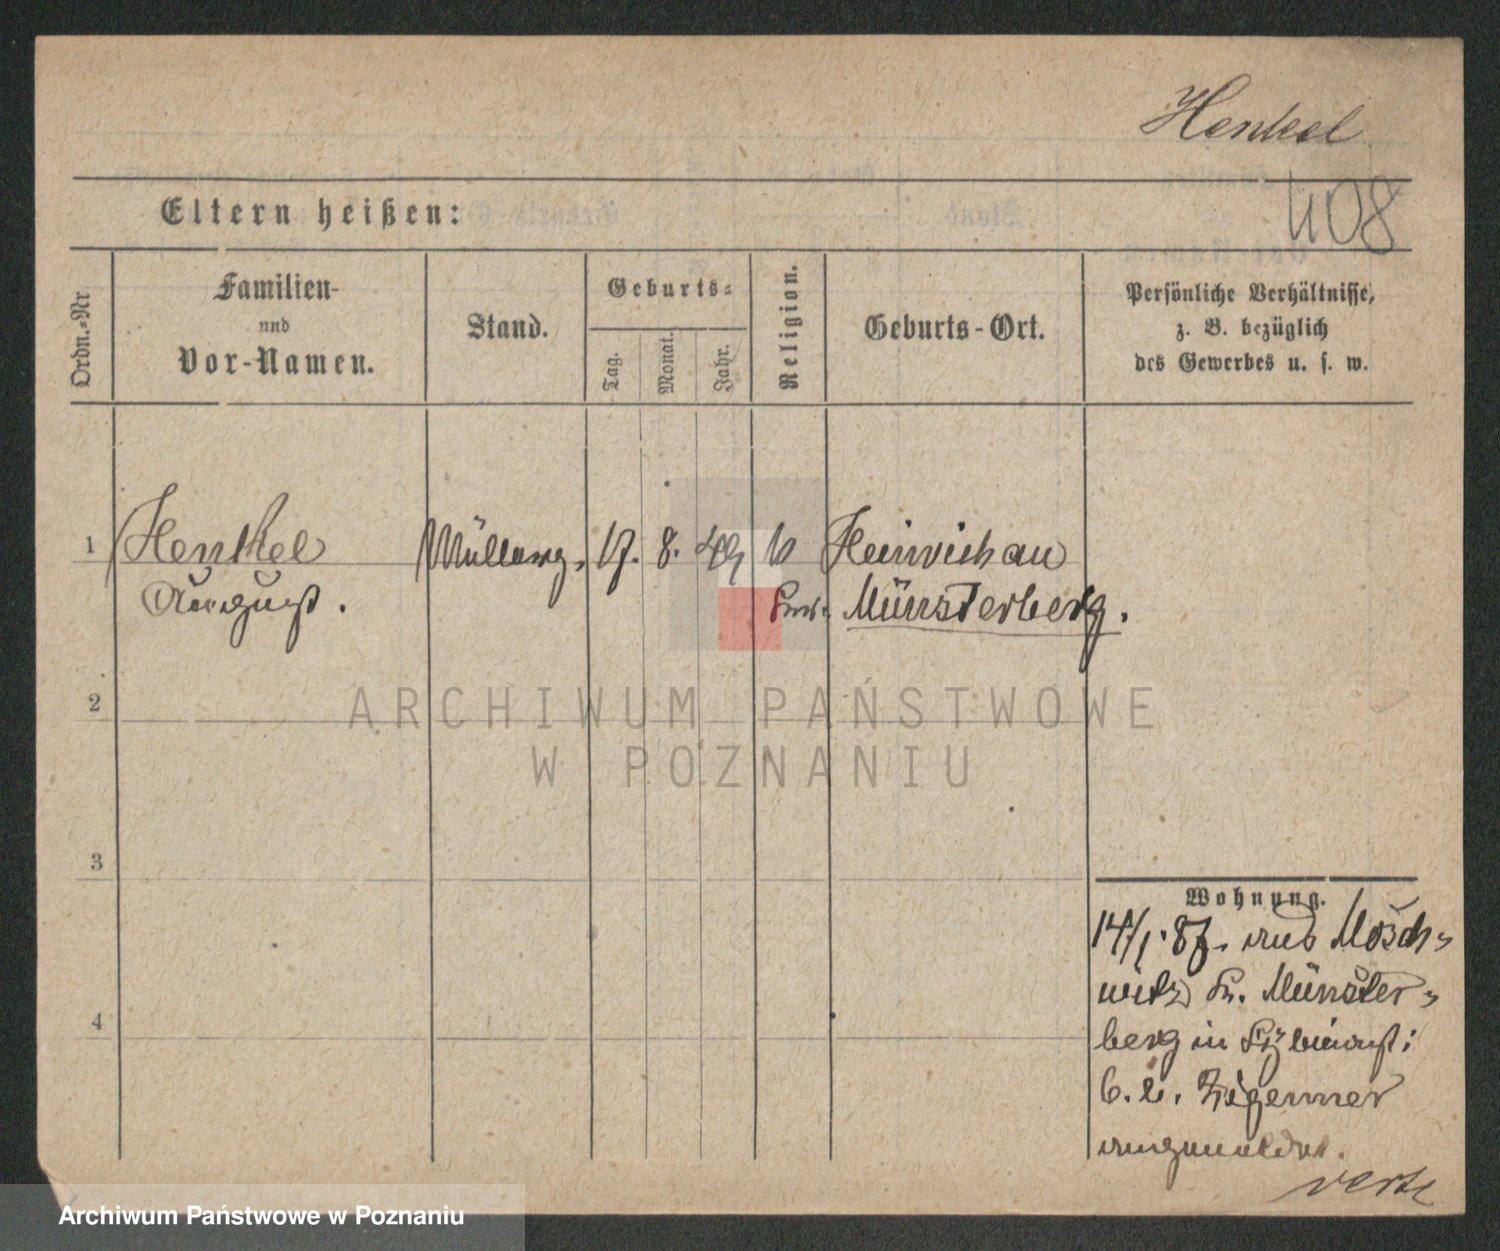 Henkel
408
Eltern heißen:
Ordn.-Nr.
Familien-
und
Vor-Namen.
Stand.
Geburts-
Tag.
Monat.
Jahr.
Religion.
Geburts-Ort.
Persönliche Verhältnisse,
z. B. bezüglich
des Gewerbes u. s. w.
1 Henkel Müllerg. 17. 8. 49 k Heinrichau
August. Münsterberg.
2
3
4
Wohnung.
14/1. 87. aus Mosch-
witz Kr. Münster-
berg in
b. Ziegenner
angemeldet.
verte
ARCHIWUM PAŃSTWOWE
W POZNANIU
Archiwum Państwowe w Poznaniu